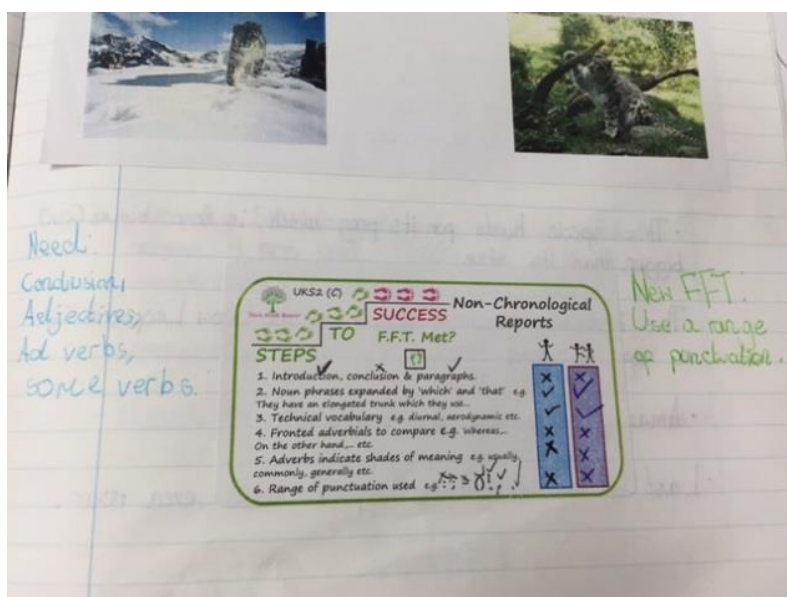 Need:
Conclusion,
Adjectives,
Ad verbs,
some verbs.
UKS2 (C)
SUCCESS
TO
STEPS
Non-Chronological
Reports
F.F.T. Met?
1. Introduction, conclusion & paragraphs.
2. Noun phrases expanded by 'which' and 'that' e.g.
They have an elongated trunk which they use...
3. Technical vocabulary e.g. diurnal, aerodynamic etc.
4. Fronted adverbials to compare e.g. Whereas,...
On the other hand,... etc
5. Adverbs indicate shades of meaning e.g. usually,
commonly, generally etc.
6. Range of punctuation used e.g.
New FFT:
Use a range
of punctuation.